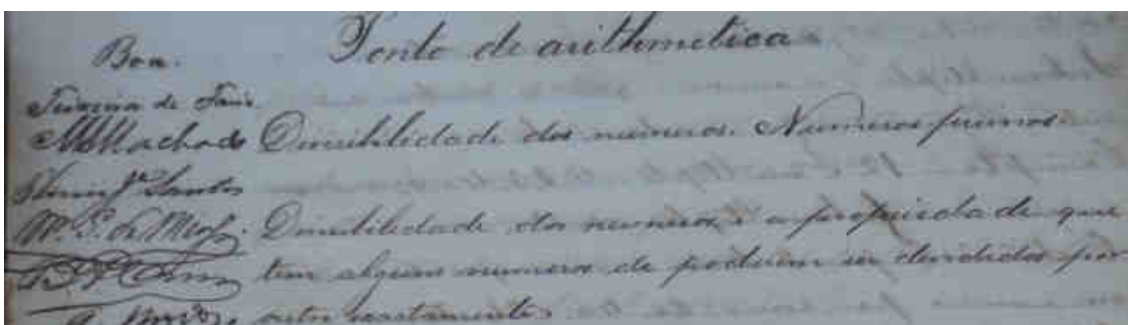 Ponto de arithmetica
Boa.
Teixeira de
MMachado Divisibilidade dos numeros. Numeros primos.
Santos
M. S. de Divisibilidade dos numeros é a propriedade que
tem alguns numeros de poderem ser divididos por
outro exactamente